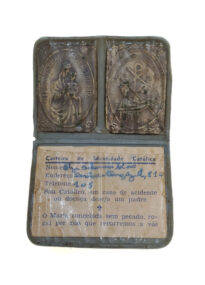 Carteira de Identidade Católica
Nome
Endereço
Telefone 105
Sou Católico, em caso de acidente
ou doença desejo um padre
O Maria concebida sem pecado, ro-
gai por nós que recorremos a vós